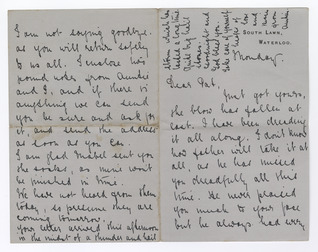 SOUTH LAWN,
WATERLOO.
Monday
Dear Pat,
Just got yours,
the blow has fallen at
last. I have been dreading
it all along. I don't know
how father will take it at
all, as he has missed
you dreadfully all this
time. He never praised
you much to your face
but he always had very
I am not saying goodbye.
as you will return safely
to us all. I enclose
pound notes from Auntie
and I, and if there is
anything we can send
you be sure and ask for
it, and send the address
as soon as you can.
I am glad Mabel sent you
the as mine won't
be finished in time.
We have not heard from them
today, so presume they are
coming tomorrow.
Your letter arrived this afternoon
in the midst of a thunder and hail
storm which has
lasted a long time
Goodnight and
God bless you.
Take care of yourself
love
and
from